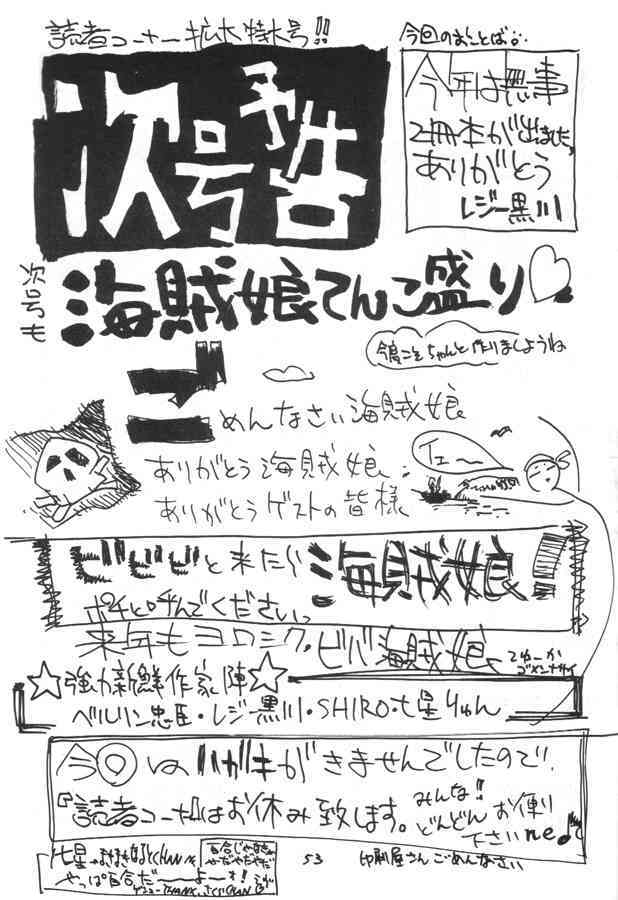 読者コーナー拡大特大号!!
次号予告
今回のおことば
今年は無事
2冊本が出ました
ありがとう
レジー黒川
次号も
海賊娘てんこ盛り♡
今度こそちゃんと作りましょうね
ごめんなさい海賊娘
ありがとう海賊娘
ありがとうゲストの皆様
イエー
ビビビと来たら海賊娘!
ポチと呼んでください。
来年もヨロシク。ビバ海賊娘
てゆーか
ゴメンナサイ
☆強力新鮮作家陣☆
ベルリン忠臣・レジー黒川・SHIRO・七星りゅん
今回はハガキがきませんでしたので、
『読者コーナー』はお休み致します。みんな!!
どんどんお便り
下さいne♪
七星
やっぱ百合だーーよーォ!
53
印刷屋さんごめんなさい